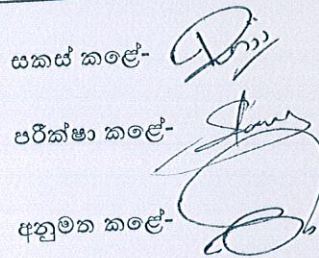 සකස් කළේ-
පරීක්ෂා කළේ-
අනුමත කළේ-